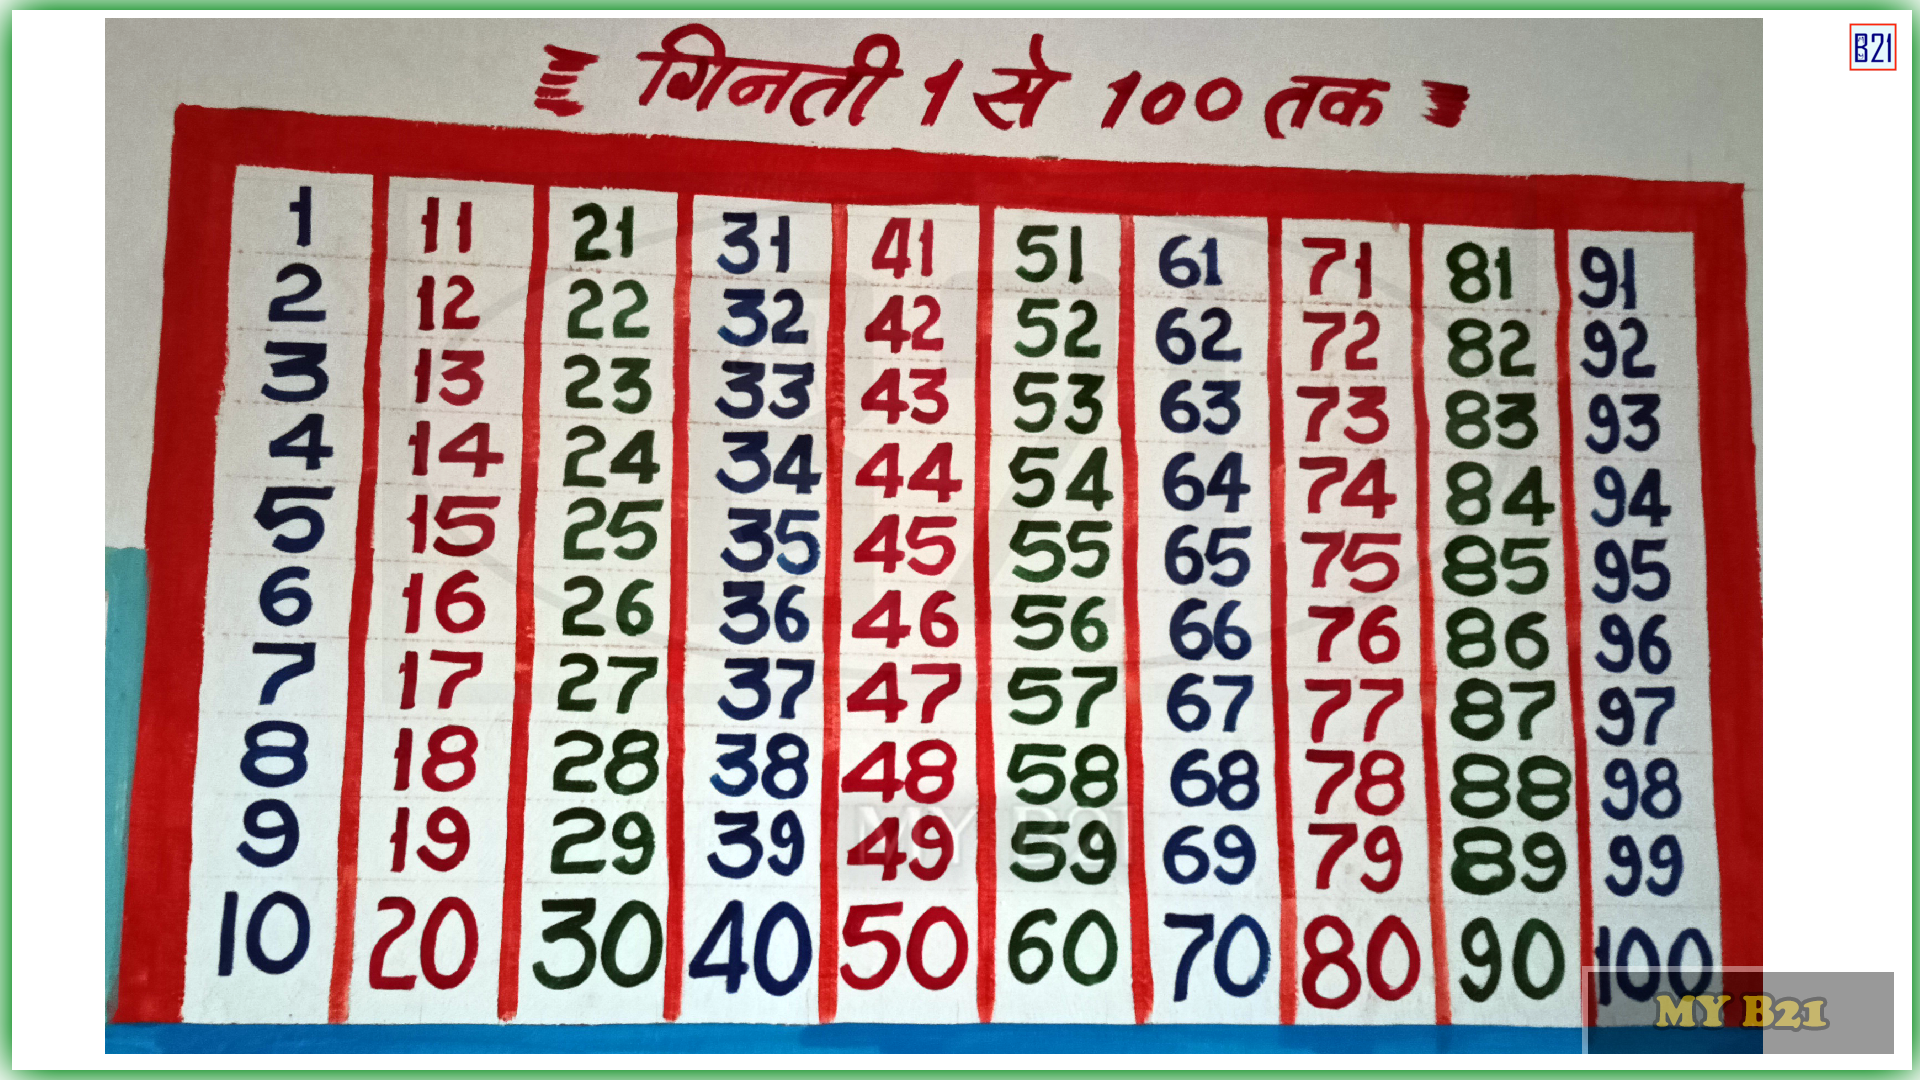 B21
गिनती 1 से 100 तक
1 11 21 31 41 51 61 71 81 91
2 12 22 32 42 52 62 72 82 92
3 13 23 33 43 53 63 73 83 93
4 14 24 34 44 54 64 74 84 94
5 15 25 35 45 55 65 75 85 95
6 16 26 36 46 56 66 76 86 96
7 17 27 37 47 57 67 77 87 97
8 18 28 38 48 58 68 78 88 98
MY B21
9 19 29 39 49 59 69 79 89 99
10 20 30 40 50 60 70 80 90 100
MY B21